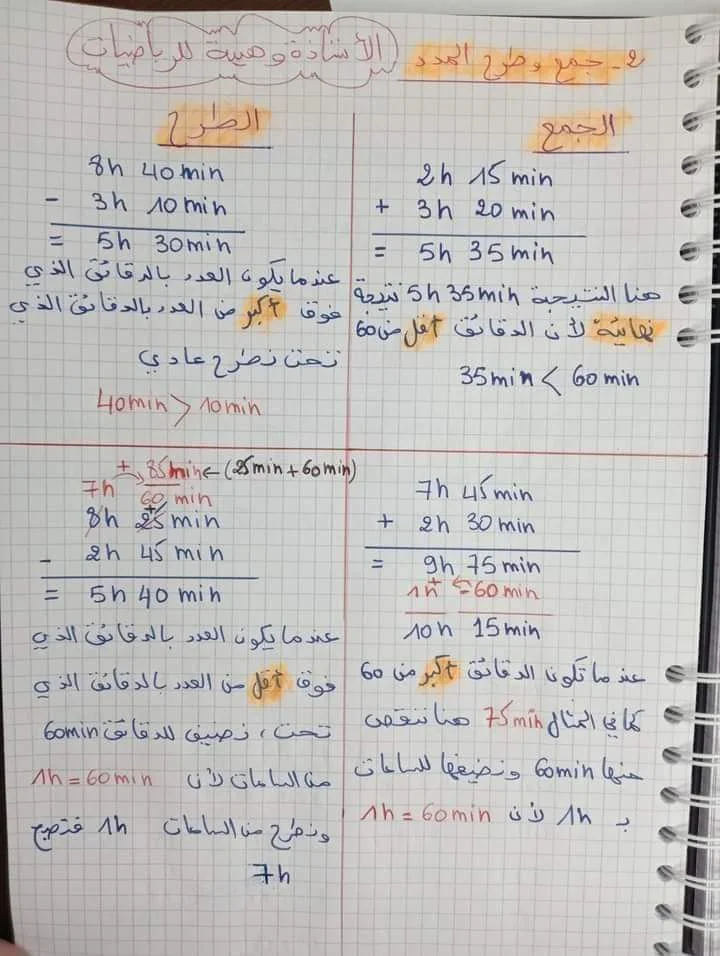 2- جمع وطرح المدد
الأستاذة وهيبة للرياضيات
الجمع
2h 15 min
+ 3h 20 min
= 5h 35 min
هنا النتيجة 5h 35min نتيجة
نهائية لأن الدقائق أقل من 60
35min < 60 min
الطرح
8h 40min
- 3h 10min
= 5h 30min
عندما يكون العدد بالدقائق الذي
فوق أكبر من العدد بالدقائق الذي
تحت نطرح عادي
40min > 10min
7h 45min
+ 2h 30 min
= 9h 75 min
1h + = -60min
10h 15min
عندما تكون الدقائق أكبر من 60
كما في المثال 75min هنا ننقص
منها 60min ونضيفها للساعات
بـ 1h لأن 1h = 60min
+ 85min ← (25min + 60min)
7h 60 min
+
8h 25 min
- 2h 45 min
= 5h 40 min
عندما يكون العدد بالدقائق الذي
فوق أقل من العدد بالدقائق الذي
تحت، نضيف للدقائق 60min
من الساعات لأن 1h = 60min
ونطرح من الساعات 1h فتصبح
7h